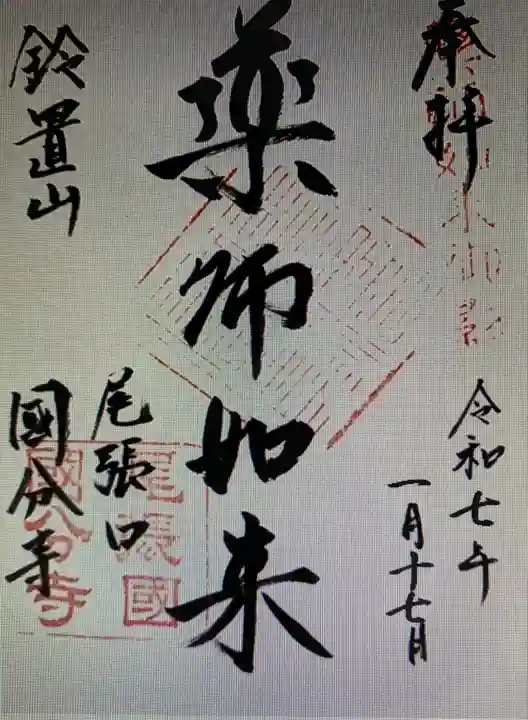 奉拝
令和七年
一月十七月
薬師如来
鈴置山
尾張口
國分寺
尾張國
國分寺